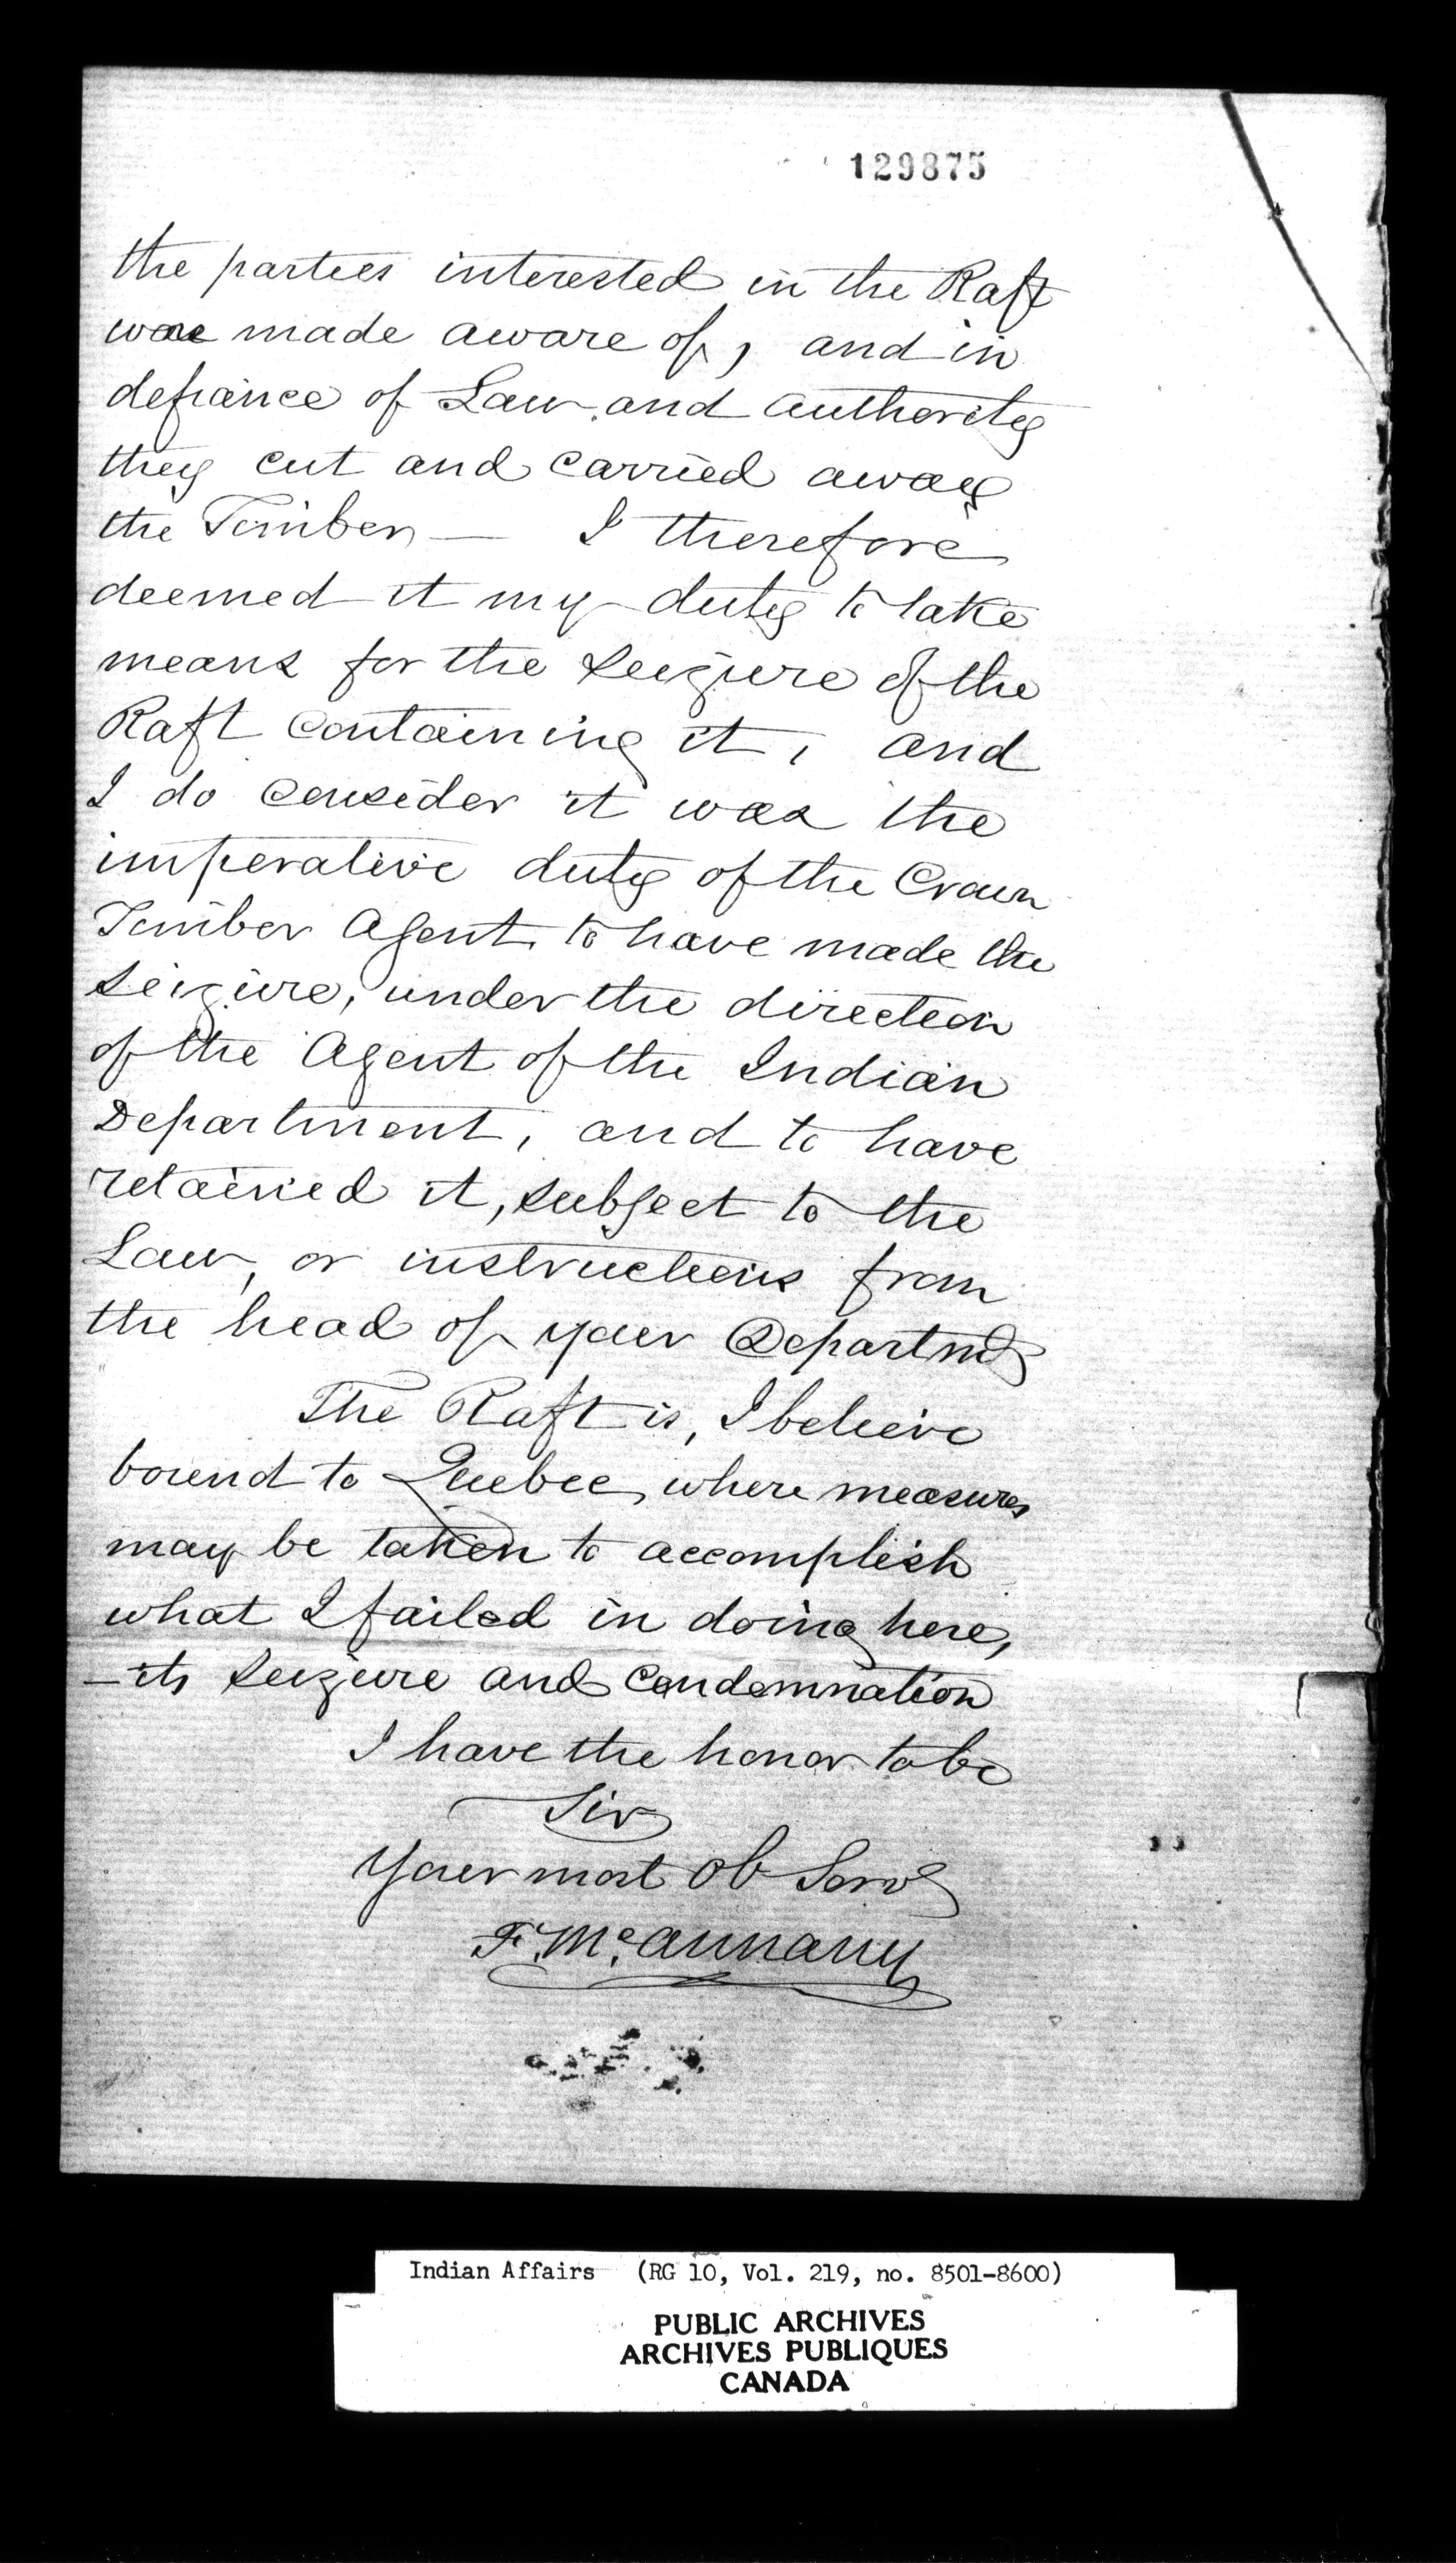 129875
the parties interested in the Raft
was made aware of, and in
defiance of Law and authority
they cut and carried away
the Timber — I therefore
deemed it my duty to take
means for the seizure of the
Raft containing it, and
I do consider it was the
imperative duty of the Crown
Timber Agent to have made the
seizure, under the direction
of the Agent of the Indian
Department, and to have
retained it, subject to the
Law, or instructions from
the head of your Departmt
The Raft is, I believe
bound to Quebec, where measures
may be taken to accomplish
what I failed in doing here,
— its seizure and condemnation
I have the honor to be
Sir
Your most Ob Servt
F. Mcannany
Indian Affairs (RG 10, Vol. 219, no. 8501-8600)
PUBLIC ARCHIVES
ARCHIVES PUBLIQUES
CANADA